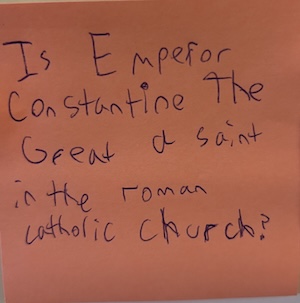 Is Emperor
Constantine The
Great a saint
in the roman
catholic church?